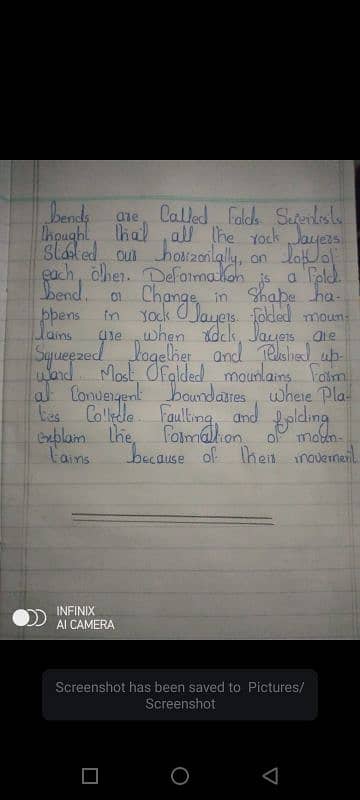 bends are Called Folds Scientists
thought that all the rock layers
Started out horizontally, on top of
each other. Deformation is a fold.
bend, or Change in Shape ha-
ppens in rock layers. folded moun-
tains are when rock layers are
Squeezed together and Pushed up-
ward Most Folded mountains Form
at Convergent boundaries where Pla-
tes Collide. Faulting and folding
explain the Formation of moun-
tains because of their movement
INFINIX
AI CAMERA
Screenshot has been saved to Pictures/
Screenshot